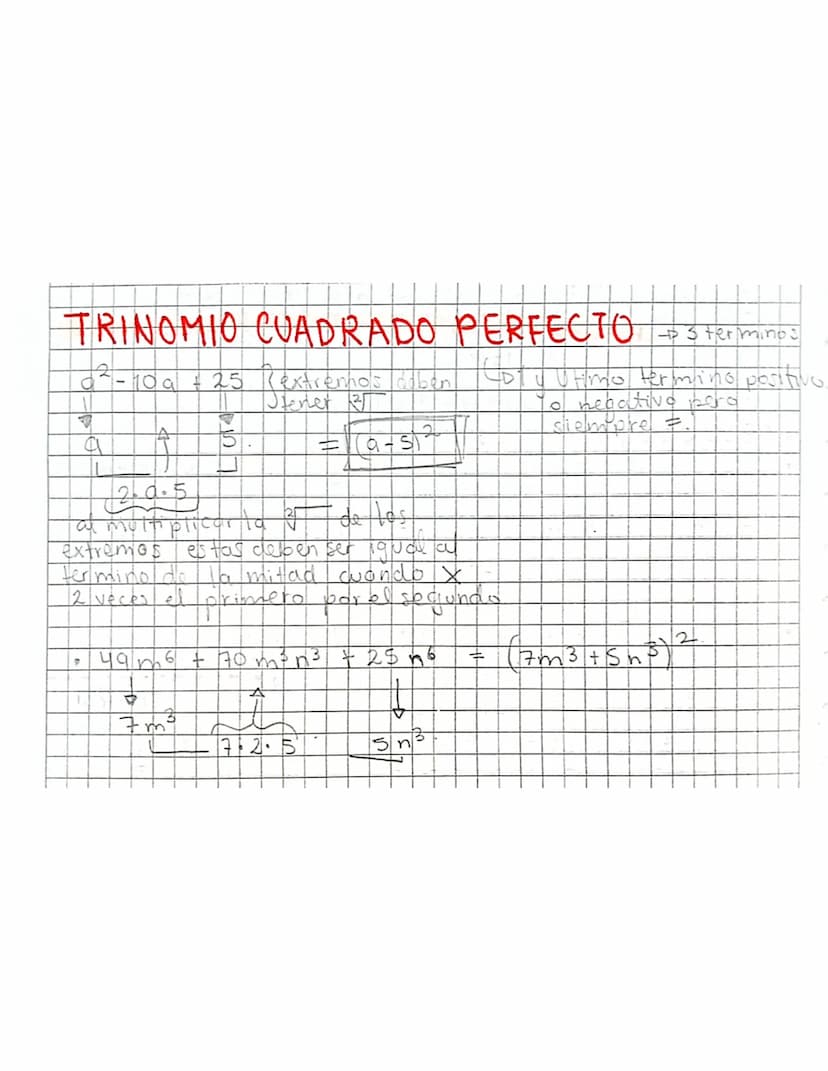 TRINOMIO CUADRADO PERFECTO → 3 terminos
a² - 10a + 25 } extremos deben tener ²√
↳ 1 y Último termino positivo
o negativo pero
siempre =.
a 5. = (a-5)²
2·a·5
al multiplicar la ²√ de los
extremos estas deben ser igual al
termino de la mitad cuando x
2 veces el primero por el segundo
• 49m⁶ + 70m³n³ + 25n⁶ = (7m³ + 5n³)²
7m³ 5n³.
7·2·5